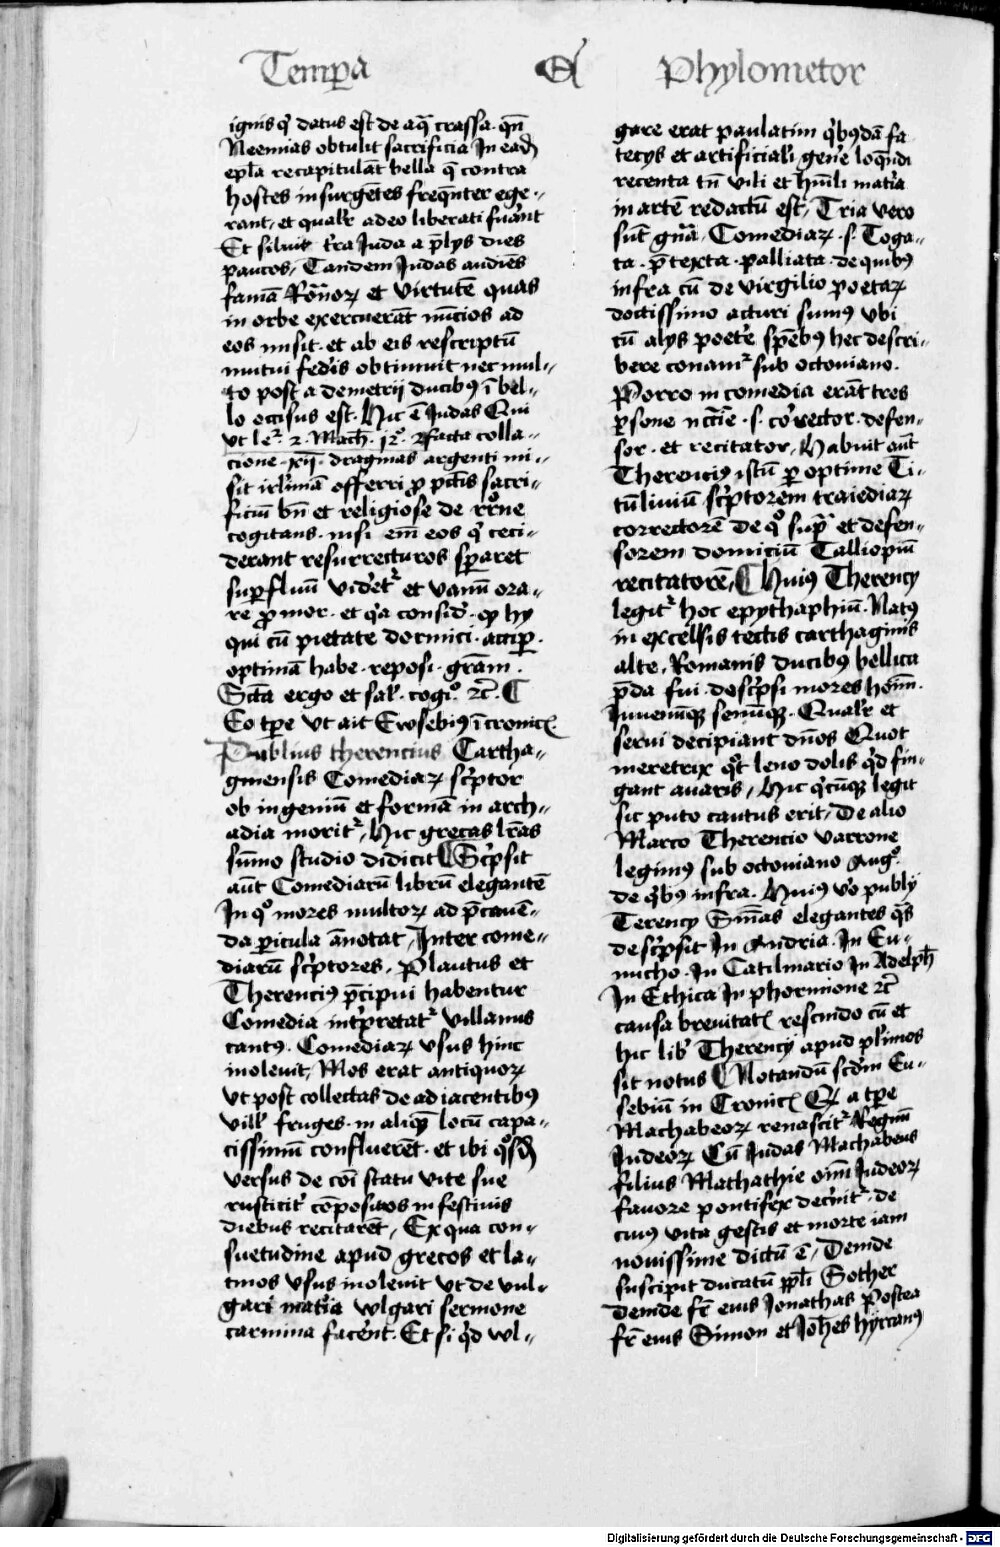 Tempa Et Phylometor
ignis q' datus est de aq̄ crassa. qn̄
Neemias obtulit sacrificia In ead'
epl̄a recapitulāt bella q̄ contra
hostes insurgētes freqn̄ter ege-
rant, et qualr' adeo liberati fu'ant
Et siluit t'ra Iuda a p̄lys dies
paucos, Tandem Iudas audiēs
famā Ro̅noꝝ et virtutē quas
in orbe exercuerāt nūcios ad
eos misit. et ab eis rescriptū
mutui fed'is obtinuit nec mul-
to post a demetrij ducibꝰ ī bel-
lo occisus est. Hic ē Iudas Qui
vt le.ʳ 2. Mach. 12°. facta colla-
cione .xij. dragmas argenti mi-
sit ir'limā offerri ꝓ pc̄tis sacri-
ficiū bn̄ et religiose de rr̄one
cogitans. nisi em̄ eos q' ceci-
derant resurrecturos sꝑaret
suꝑfluū vid'etʳ et vanū ora-
re ꝓ mor. et q'a consid'. ꝙ hy
qui cū pietate dormici. accip.
optimā habe. reposi. grām.
Sc̄ta ergo et sal'. cogi°. ⁊c̄. ¶
Eo tꝑe vt ait Eusebiꝰ ī cronicꝭ
Publius therencius Cartha-
ginensis Comediaꝝ sc'ptor
ob ingeniū et formā in arch-
adia moritʳ, Hic grecas lr̄as
sūmo studio didicit ¶ Sc'psit
aūt Comediarū librū elegantē
In q° mores multoꝝ ad p̄cauē-
da ꝑicula ānotat, Inter come-
diarū sc'ptores, Plautus et
Therenciꝰ p̄cipui habentur
Comedia int'pretatʳ villanus
cantꝰ. Comediaꝝ vsus hinc
inoleuit, Mos erat antiquoꝝ
vt post collectas de adiacentibꝰ
vill' fruges. in aliqd' locū capa-
cissimū confluerēt. et ibi q°sd'
versus de cōi statu vite sue
rusticit' cōpositos in festiuis
diebus recitarēt, Ex qua con-
suetudine apud grecos et la-
tinos vsus inoleuit vt de vul-
gari mat'ia wlgari sermone
carmina fac'ent. Et si q'd wl-
gare erat paulatim q'bꝰdā fa
tecys et artificiali gen'e loqn̄di
recenta tn̄ vili et hūli mat'ia
in artē redactū est, Tria vero
sūt gn̄'a. Comediaꝝ .s. Toga-
ta. p̄texta. palliata. de quibꝰ
infra cū de virgilio poetaꝝ
doctissimo acturi sumꝰ vbi
cū alys poete' spēbꝰ hec descri-
bere conamʳ sub octouiano.
Porro in comedia erāt tres
ꝑsone nc̄'ie .s. corrector. defen-
sor. et recitator, Habuit aūt
Therenciꝰ istū ꝑ optime Ti-
tūliuiū sc'ptorem traiediaꝝ
correctorē De q° sup̄ et defen-
sorem domiciū Talliopiū
recitatorē, ¶ Huiꝰ Therency
legitʳ hoc epythaphiū. Natꝰ
in excelsis tectis carthaginis
alte, Romanis ducibꝰ bellica
p̄da fui. desc'psi mores hoīm.
Iuuenūqꝫ senūqꝫ. Qualr' et
serui decipiant dn̄os Quot
meretrix q°t leno dolis q'd fin-
gant auaris, Hic q'cūqꝫ legit
sic puto cautus erit, De alio
Marco Therencio varrone
legimꝰ sub octouiano Aug°.
de q'bꝰ infra. Huiꝰ v'o publy
Terency Sn̄ias elegantes q̄s
desc'psit In Andria. In Eu-
nucho. In Catilinario In Adelph̄
In Ethica In phormione ⁊c̄
causa breuitatꝭ rescindo cū et
hic lib' Therency apud pl'imos
sit notus ¶ Notandū scd'm Eu-
sebiū in Cronicꝭ Qd' a tꝑe
Machabeoꝝ renascitʳ Regnū
Iudeoꝝ Cū Iudas Machabeus
filius Mathathie oīm Iudeoꝝ
fauore pontifex dec'nitʳ. de
cuius vita gestis et morte iam
nouissime dictū ē, Deinde
suscipit ducatū ppl'i Sother
deinde fr̄ eius Ionathas Postea
fr̄ eius Simon et Ioh̄es hyrcanꝰ
Digitalisierung gefördert durch die Deutsche Forschungsgemeinschaft - DFG